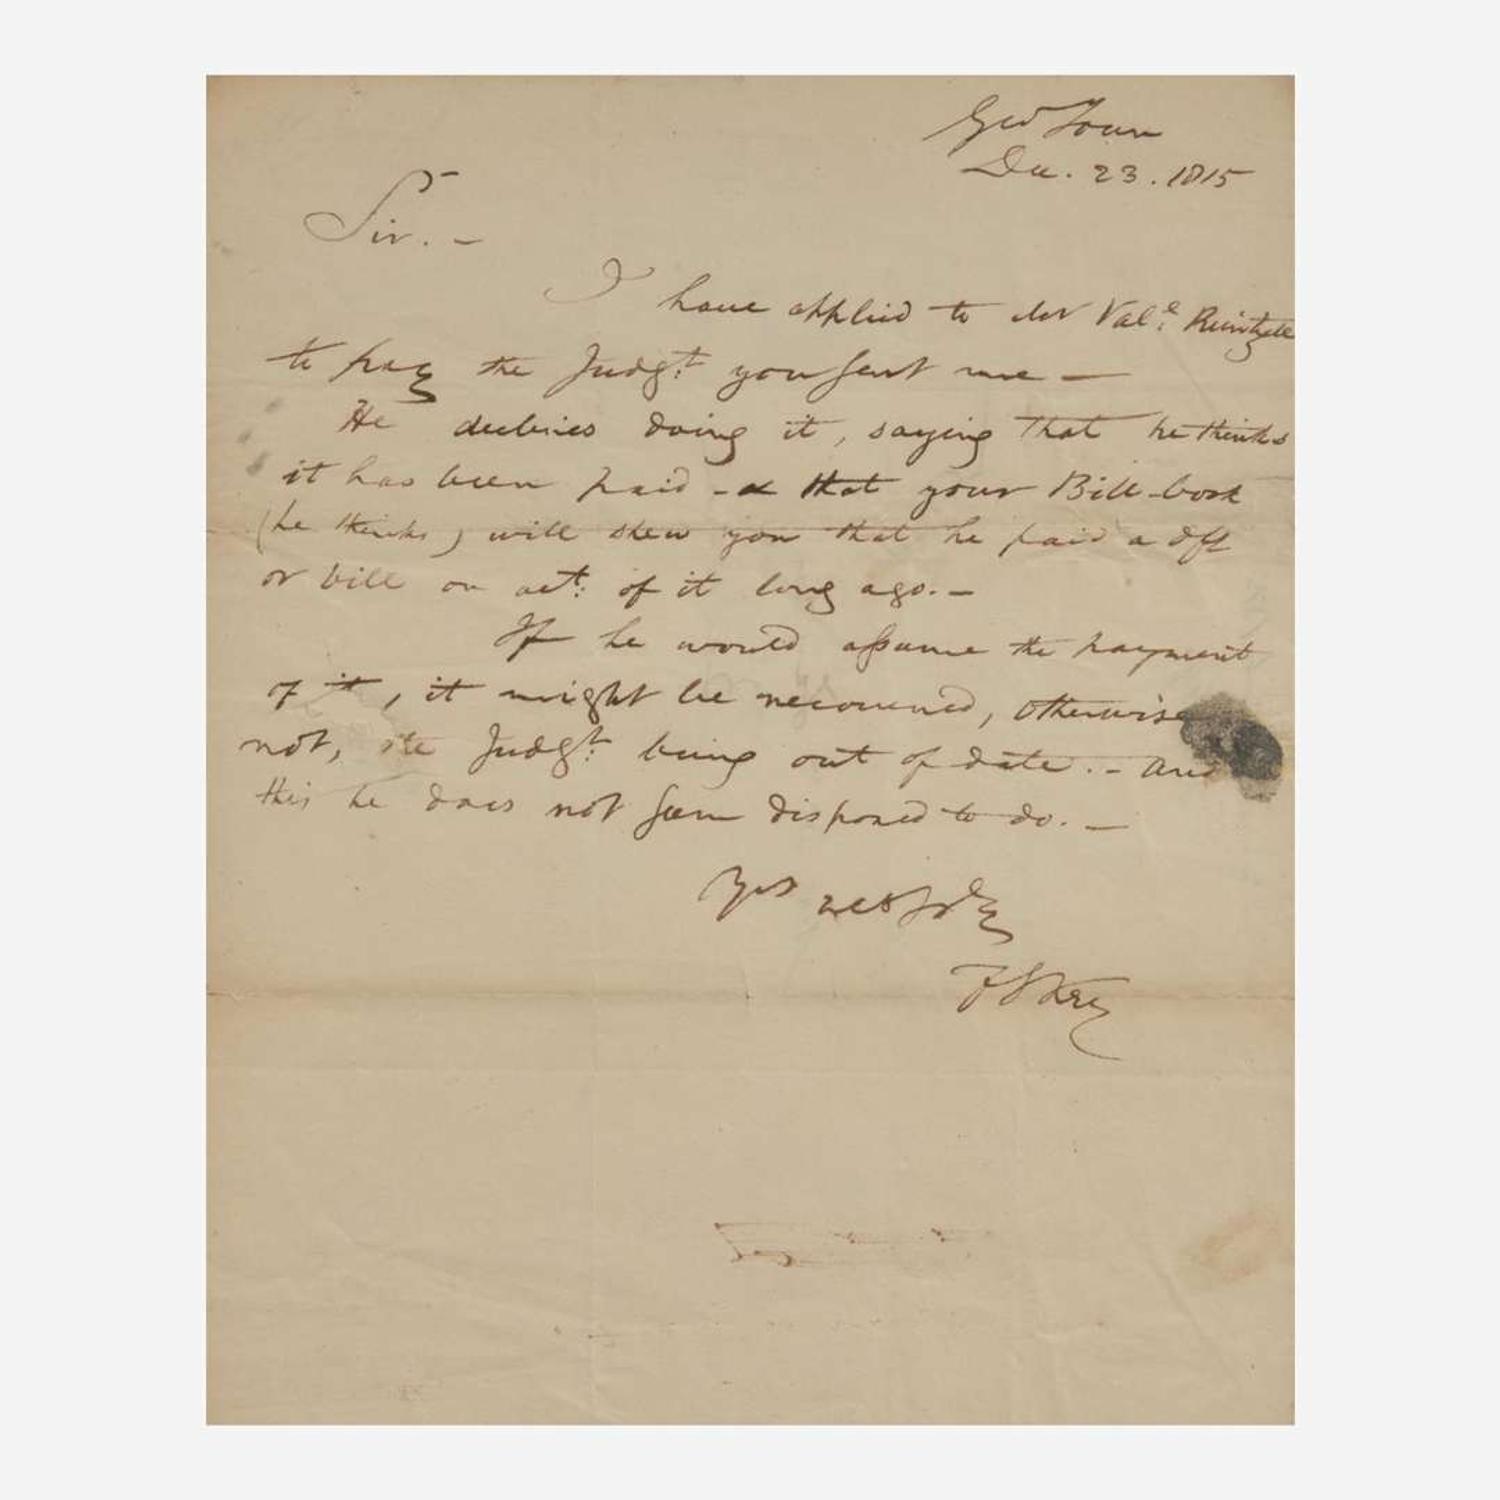 Geo Town
Dec. 23. 1815
Sir. -
I have applied to Mr Vale: Reintzell
to pay the Judgt: you sent me —
He declines doing it, saying that he thinks
it has been paid - & that your Bill-book
(he thinks) will shew you that he paid a dft
or bill on act: of it long ago. -
If he would assume the payment
of it, it might be recovered, otherwise
not, the Judgt: being out of date. - And
this he does not seem disposed to do. —
Yrs
F S Key